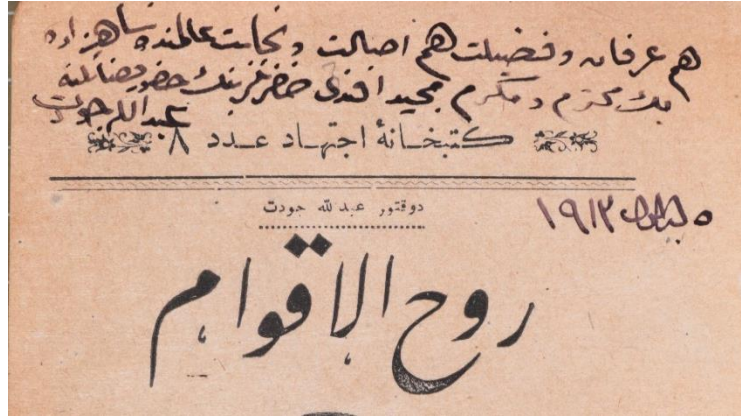 هم عرفان و فضیلت هم اصالت و نجابت عالمنده شاهزاده
بك محترم و مكرم مجید افندی حضرتلرینك حضور
عبد الله جودت
كتبخانهٔ اجتهاد عدد ٨
٥ ١٩١٢
دوقتور عبد لله جودت
روح الاقوام